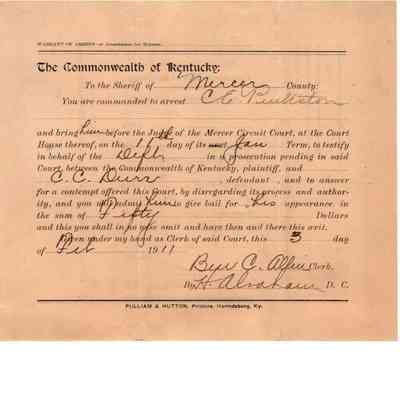 WARRANT OF ARREST—
The Commonwealth of Kentucky:
To the Sheriff of Mercer County:
You are commanded to arrest C E Pinkston
and bring him before the Judge of the Mercer Circuit Court, at the Court
House thereof, on the 16 day of its next Jan Term, to testify
in behalf of the Deft in a prosecution pending in said
Court between the Commonwealth of Kentucky, plaintiff, and
C. C. Durr, defendant and to answer
for a contempt offered this Court, by disregarding its process and author-
ity, and you may admit him to give bail for his appearance in
the sum of Fifty Dollars
and this you shall in no wise omit and have then and there this writ.
Given under my hand as Clerk of said Court, this 3 day
of Feb 1911
Ben C. Allin Clerk.
By H. Abraham D. C.
PULLIAM & HUTTON, Printers, Harrodsburg, Ky.